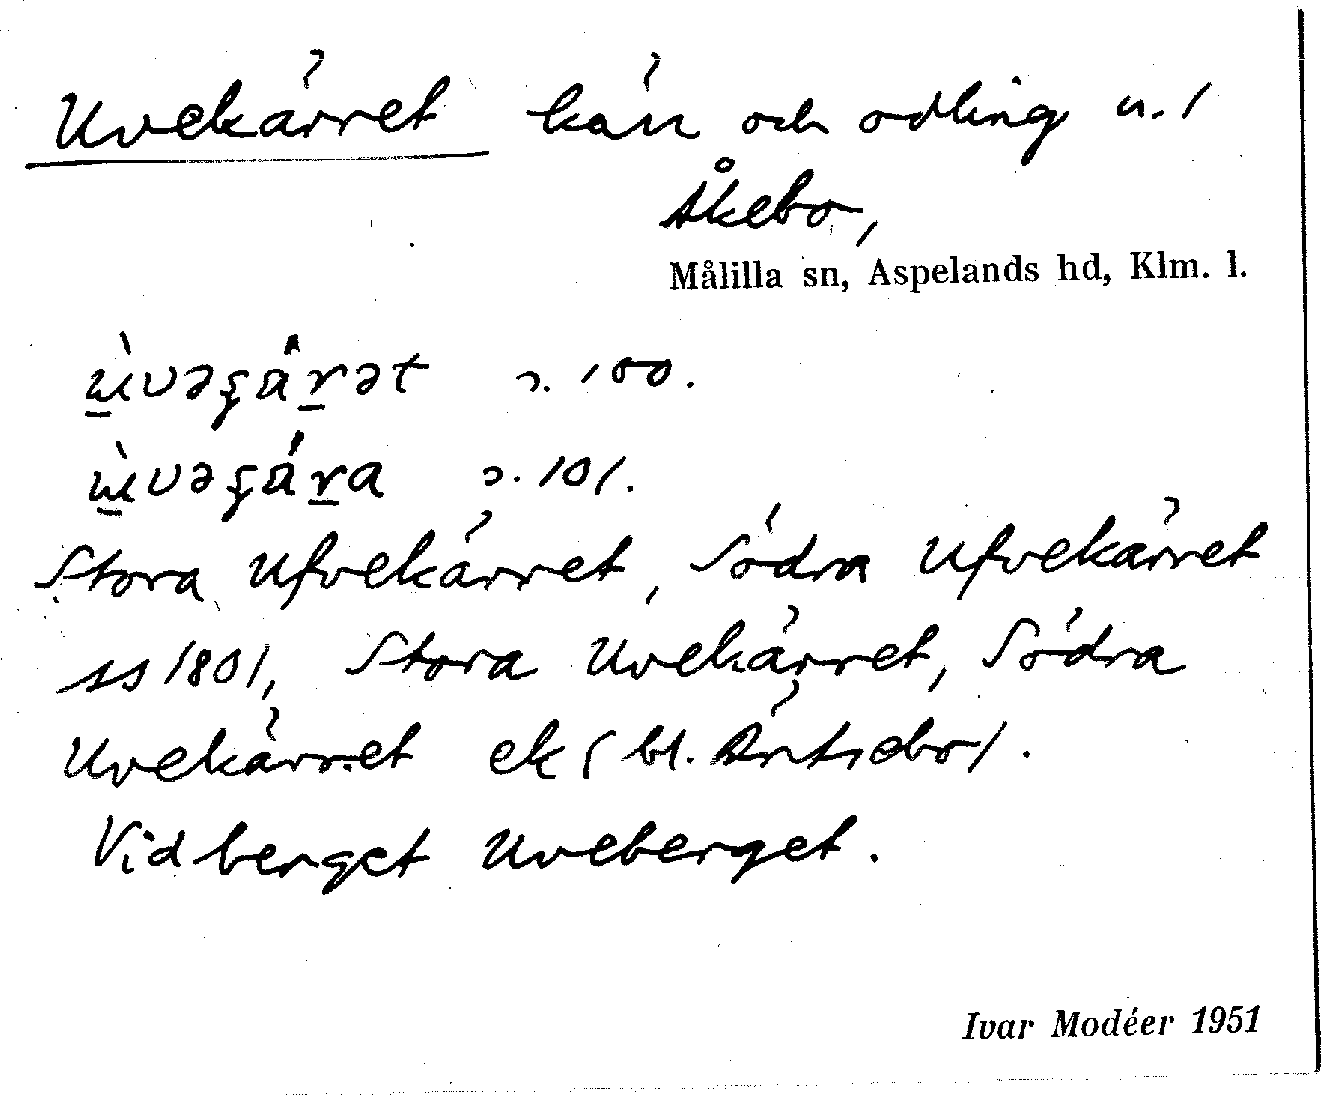 Uvekärret kärr och odling n. /
Åkebo,
Målilla sn, Aspelands hd, Klm. l.
100.
101.
Stora Ufvekärret, Södra Ufvekärret
ss 1801, Stora Uvekärret, Södra
Uvekärret ek (bl. Äntsebo).
Vid berget Uveberget.
Ivar Modéer 1951